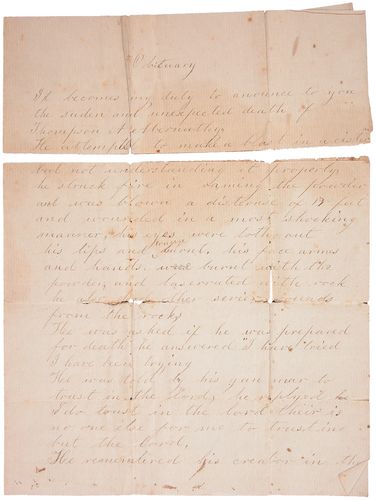 Obituary
It becomes my duty to anounce to you
the suden and unexpected death of
Thompson A Abernathy
He attempted to make a blast in a cistern
but not understanding it properly,
he struck fire in raming the powder
and was blown a distense of 12 feet
and wounded in a most shocking
manner, his eyes were both out
his lips and tongue burnt, his face arms
and hands were burnt with the
powder, and lascerated with rock
he also other severe wounds
from the rocks
He was asked if he was prepared
for death he answered "I have tried
I have been trying
He was told by his
to
trust in the Lord, he replyed
I do trust in the lord their is
no one else for me to trust in
but the Lord,
He remembered his creator in the